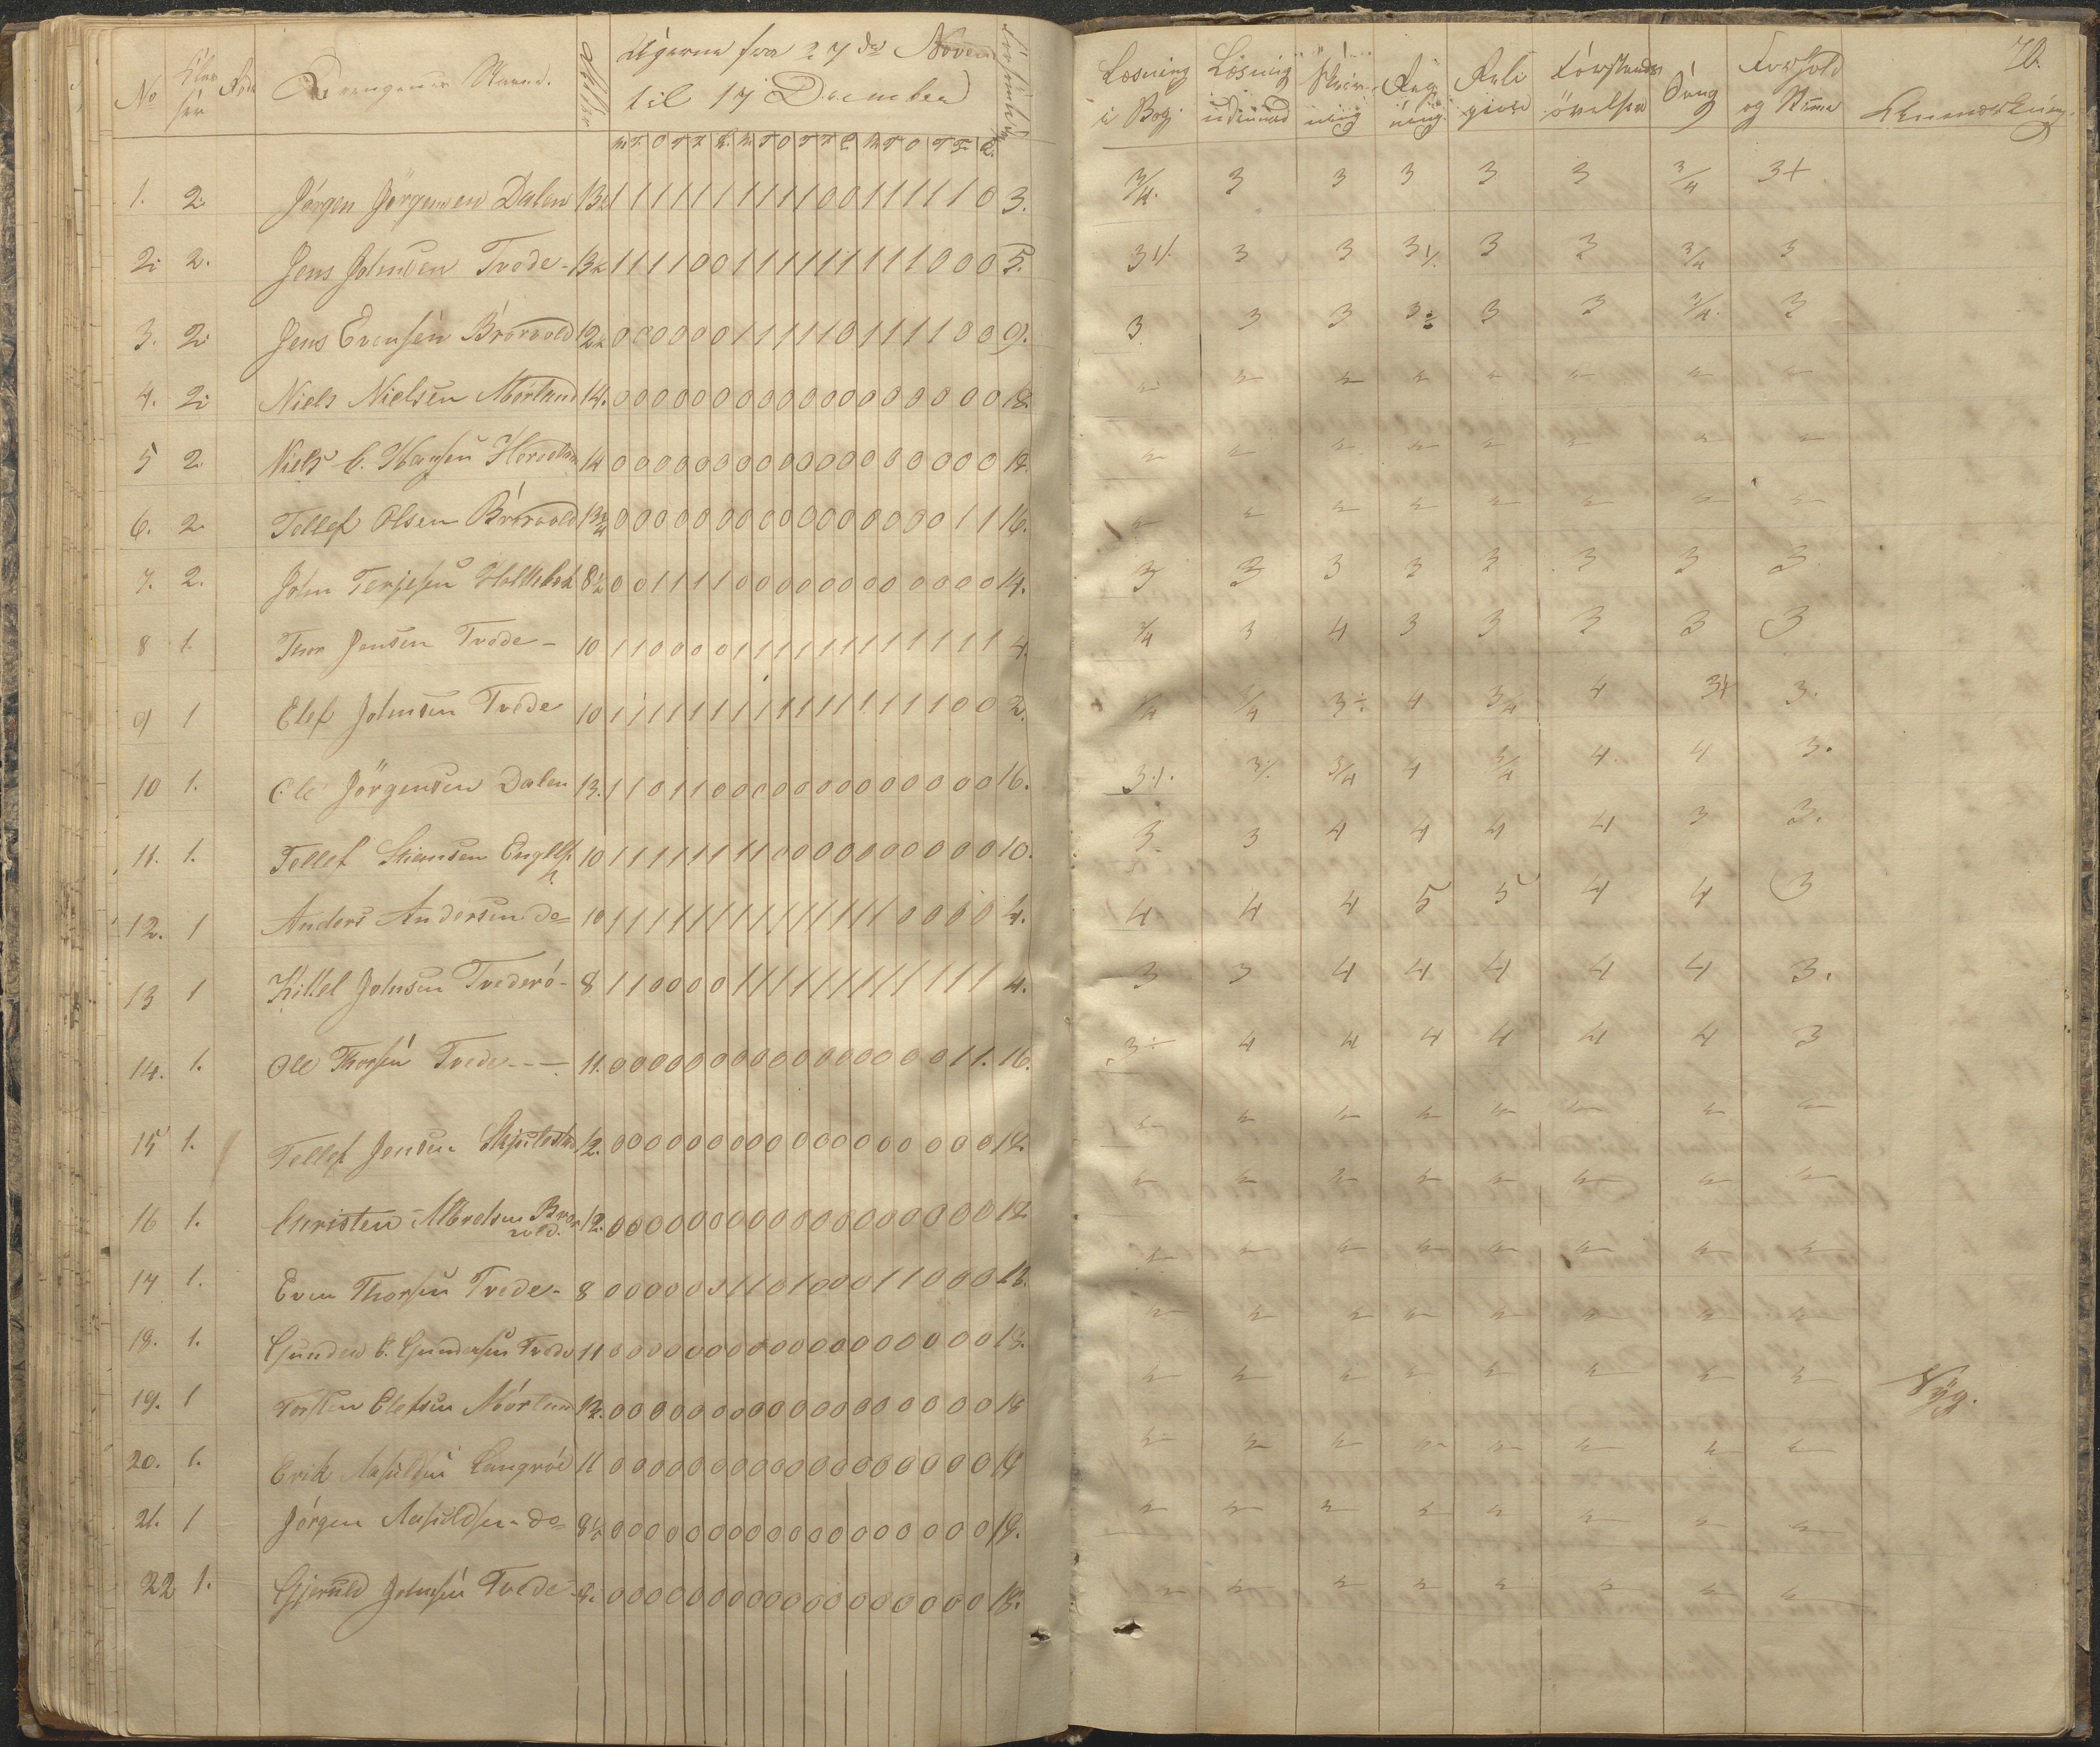 No Klas sen Drengenes Navne. Alder Ugerne fra 27de Novem til 17 December Forsømte
M T O T F L M T O T F L M T O T F L
1. 2. Jørgen Jørgensen Dalen 13½ 1 1 1 1 1 1 1 1 1 1 0 0 1 1 1 1 1 0 3.
2. 2. Jens Johnsen Tvede - 13½ 1 1 1 1 0 0 1 1 1 1 1 1 1 1 1 0 0 0 5.
3. 2. Jens Evensen Brørvold 12½ 0 0 0 0 0 0 1 1 1 1 1 0 1 1 1 1 0 0 9.
4. 2. Niels Nielsen Mørland 14. 0 0 0 0 0 0 0 0 0 0 0 0 0 0 0 0 0 0 18.
5 2. Niels C. Hansen 14 0 0 0 0 0 0 0 0 0 0 0 0 0 0 0 0 0 0 18.
6. 2. Tellef Olsen Brørvold 13¾ 0 0 0 0 0 0 0 0 0 0 0 0 0 0 0 0 1 1 16.
7. 2. John Terjesen 8½ 0 0 1 1 1 1 0 0 0 0 0 0 0 0 0 0 0 0 14.
8 1. Thor Jensen Tvede - 10 1 1 0 0 0 0 1 1 1 1 1 1 1 1 1 1 1 1 4.
9 1 Elef Johnsen Tvede 10 1 1 1 1 1 1 1 1 1 1 1 1 1 1 1 1 0 0 2.
10 1. Ole Jørgensen Dalen 13. 1 1 0 1 1 0 0 0 0 0 0 0 0 0 0 0 0 0 16.
11. 1. Tellef 10 1 1 1 1 1 1 1 1 0 0 0 0 0 0 0 0 0 0 10.
12. 1 Anders Andersen do 10 1 1 1 1 1 1 1 1 1 1 1 1 1 1 0 0 0 0 4.
13 1 Kittel Johnsen Tvederø - 8 1 1 0 0 0 0 1 1 1 1 1 1 1 1 1 1 1 1 4.
14. 1. Ole Thorsen Tvede - - - 11. 0 0 0 0 0 0 0 0 0 0 0 0 0 0 0 0 1 1. 16.
15 1. Tellef Jensen 12. 0 0 0 0 0 0 0 0 0 0 0 0 0 0 0 0 0 0 18.
16 1. Christen Albretsen Brørvold. 12. 0 0 0 0 0 0 0 0 0 0 0 0 0 0 0 0 0 0 18
17 1. Even Thorsen Tvede - 8 0 0 0 0 0 0 1 1 0 1 0 0 0 1 1 0 0 0 13.
18. 1. Gunder C. Gundersen Tvede 11 0 0 0 0 0 0 0 0 0 0 0 0 0 0 0 0 0 0 18.
19. 1 Torsten Elefsen Mørland 12. 0 0 0 0 0 0 0 0 0 0 0 0 0 0 0 0 0 0 18
20. 1. Erik Aasuldsen Langrød 11 0 0 0 0 0 0 0 0 0 0 0 0 0 0 0 0 0 0 18
21. 1 Jørgen Aasuldsen do 8½ 0 0 0 0 0 0 0 0 0 0 0 0 0 0 0 0 0 0 18.
22 1. Gjeruld Johnsen Tvede 0 0 0 0 0 0 0 0 0 0 0 0 0 0 0 0 0 0 18.
70.
Læsning i Bog Læsning udenad Skrivning Regning Religion Forstandsøvelser Sang Forhold og Anmærkning.
3/4. 3 3 3 3 3 3/4 3+
3 3 3 3 3/4 3
3 3 3 3÷ 3 3 3/4 3
3 3 3 3 3 3 3 3
3/4 3 4 3 3 3 3 3
3/4 3/4 3÷ 4 3/4 4 3+ 3.
3/4 4 3/4 4 4 3.
3 3 4 4 4 4 3 3.
4 4 4 5 5 4 4 3
3 3 4 4 4 4 4 3.
3÷ 4 4 4 4 4 4 3
Syg.